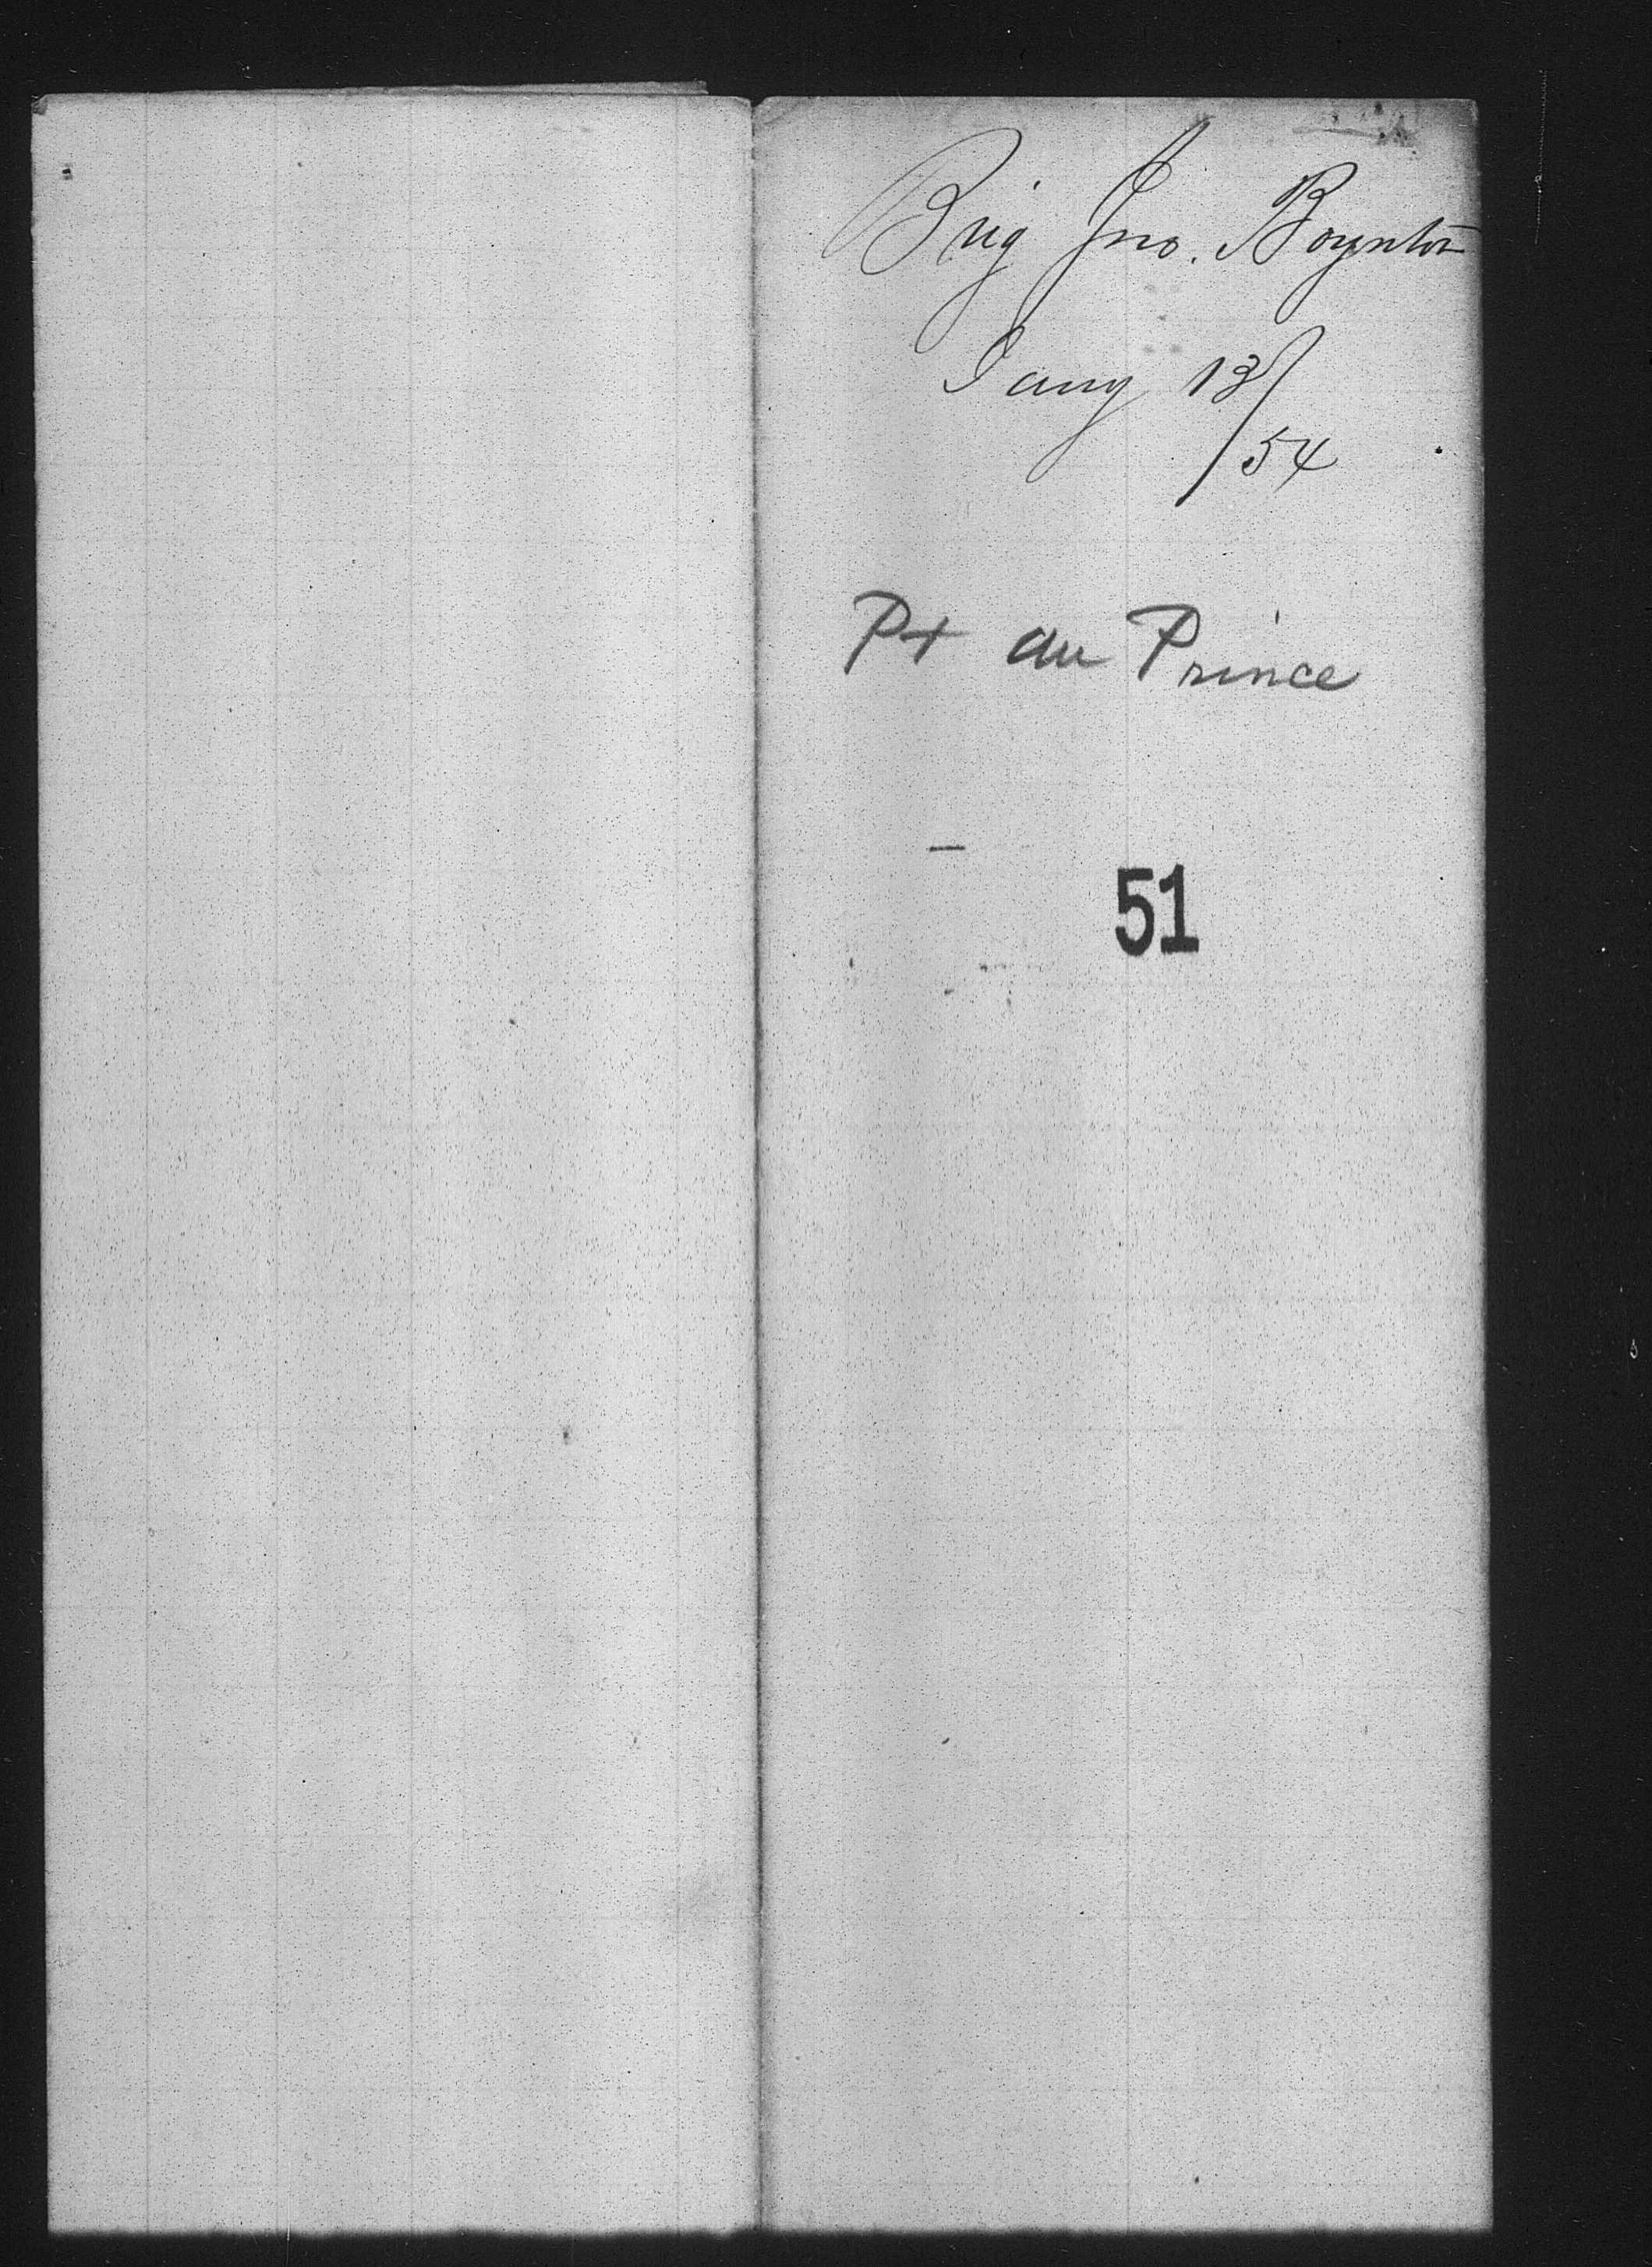 Brig Jno. Boynton
Jany 13/
54
Pt au Prince
51